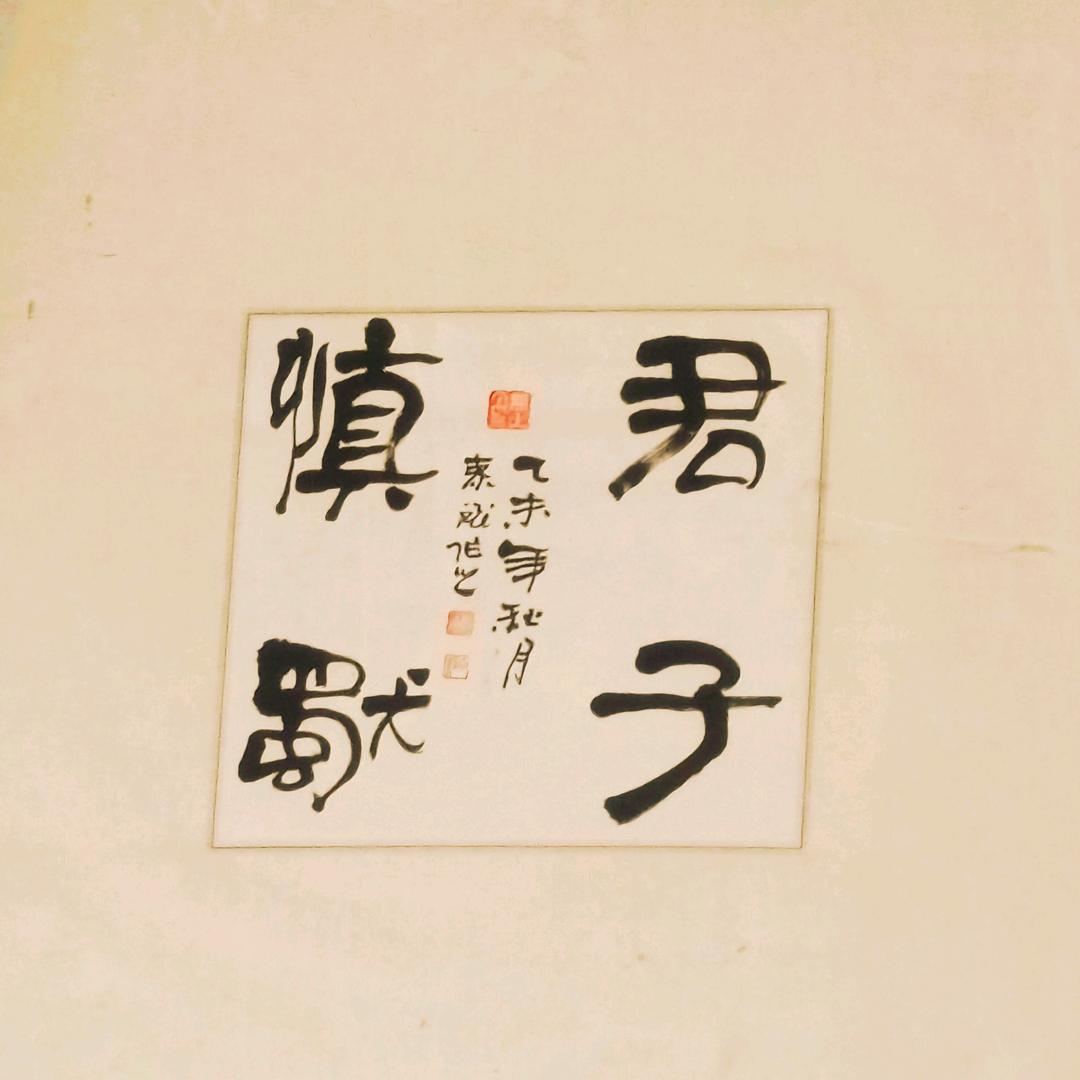 君子
慎獨
乙未年秋月
東龍作之